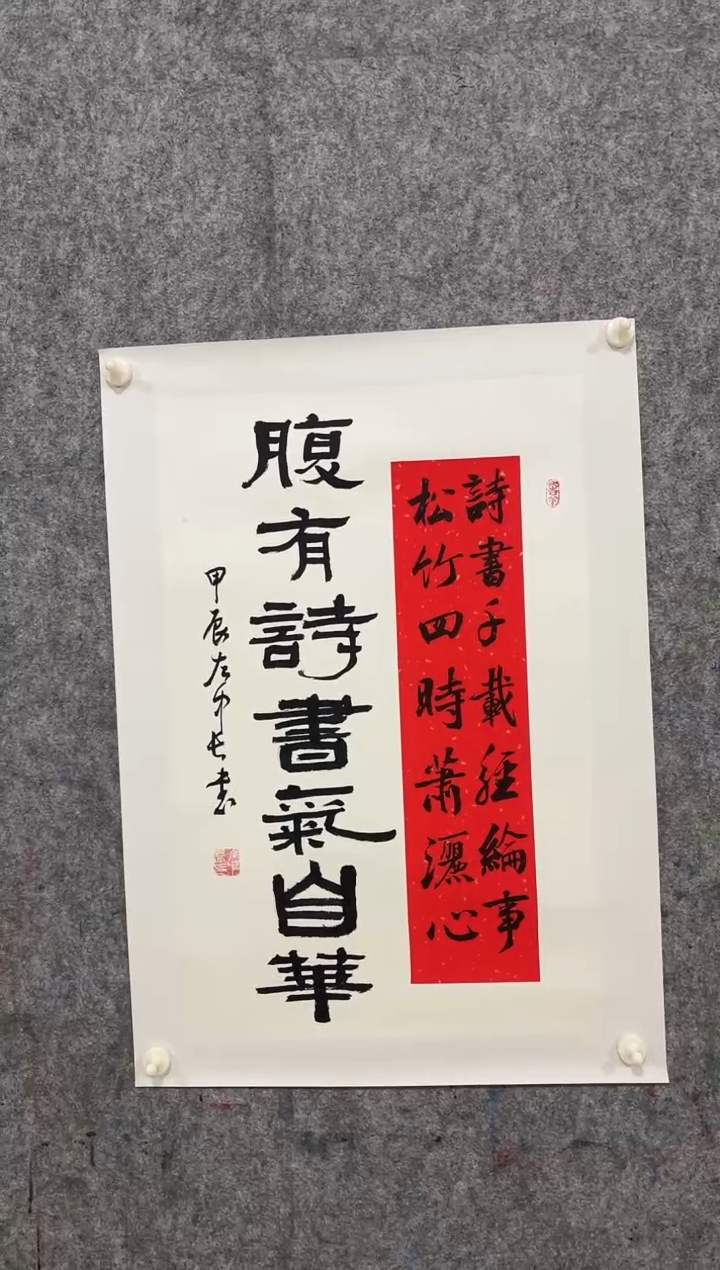 詩書千載經綸事
松竹四時蕭灑心
腹有詩書氣自華
甲辰左中長書